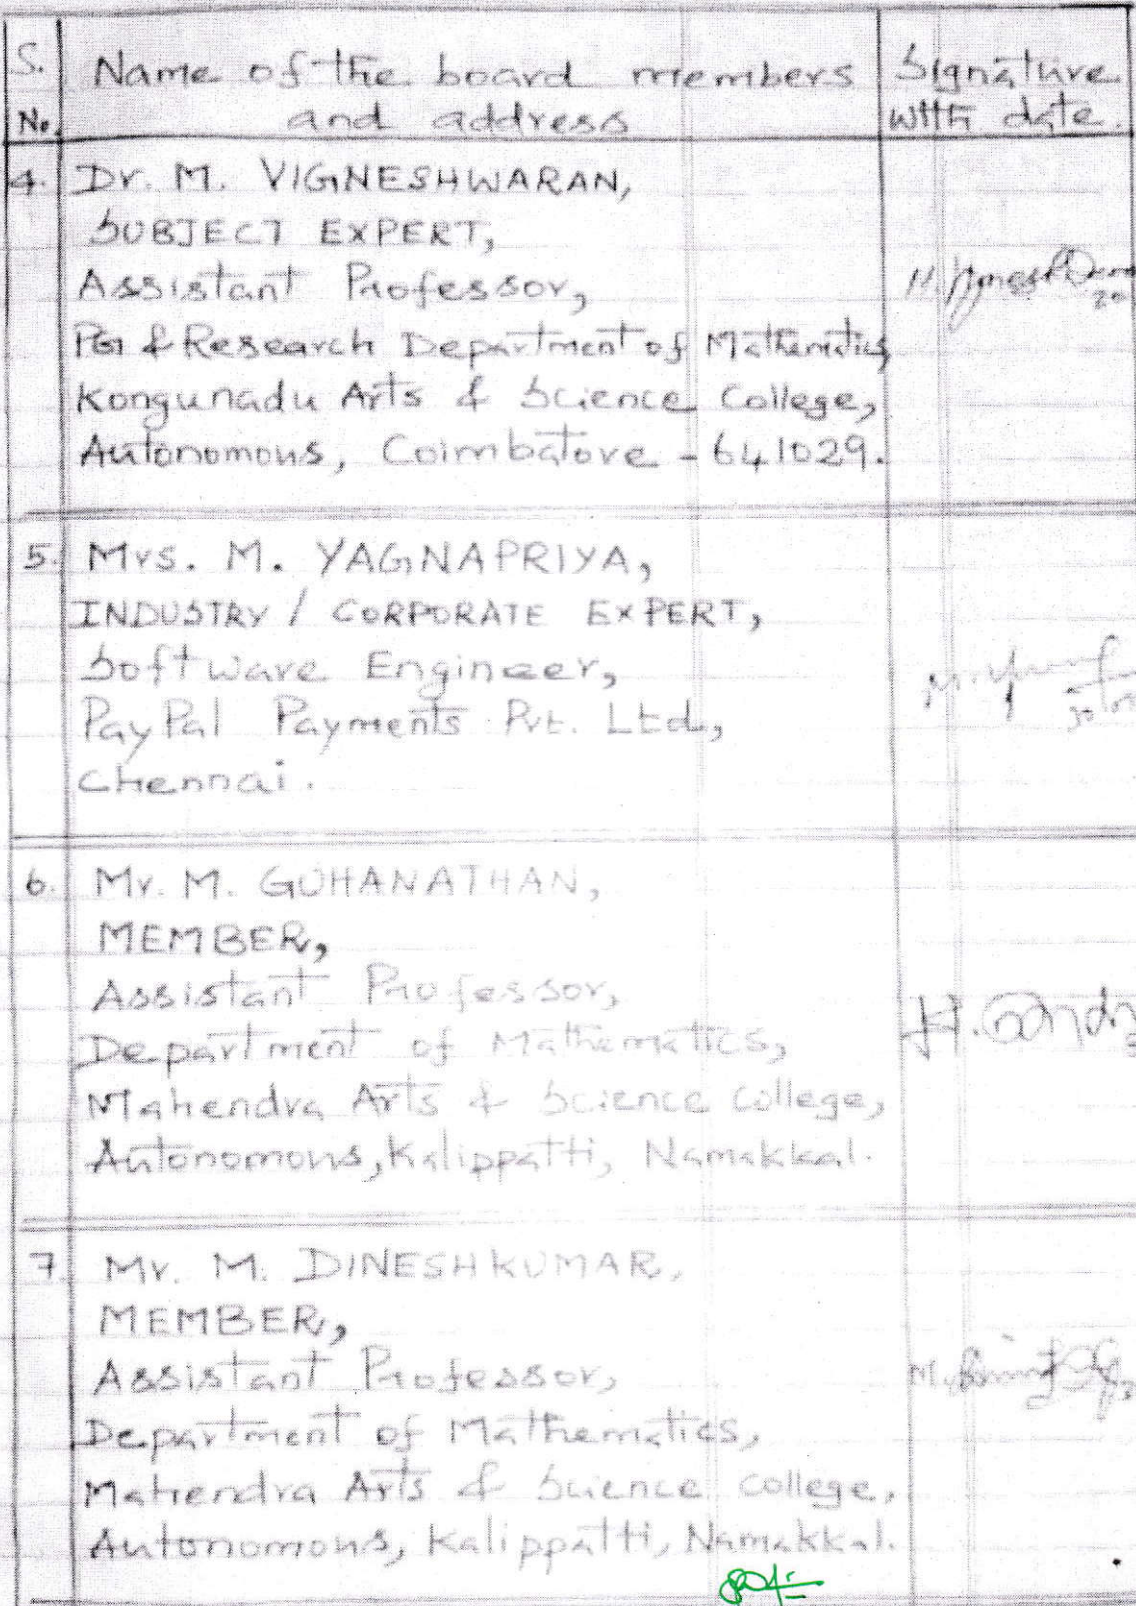 S. No. Name of the board members and address Signature with date.
4. Dr. M. VIGNESHWARAN,
SUBJECT EXPERT,
Assistant Professor,
PG & Research Department of Mathematics
Kongunadu Arts & Science College,
Autonomous, Coimbatore - 641029.
5. Mrs. M. YAGNAPRIYA,
INDUSTRY / CORPORATE EXPERT,
Software Engineer,
PayPal Payments Pvt. Ltd.,
Chennai.
6. Mr. M. GUHANATHAN,
MEMBER,
Assistant Professor,
Department of Mathematics,
Mahendra Arts & Science College,
Autonomous, Kalippatti, Namakkal.
7. Mr. M. DINESHKUMAR,
MEMBER,
Assistant Professor,
Department of Mathematics,
Mahendra Arts & Science College,
Autonomous, Kalippatti, Namakkal.